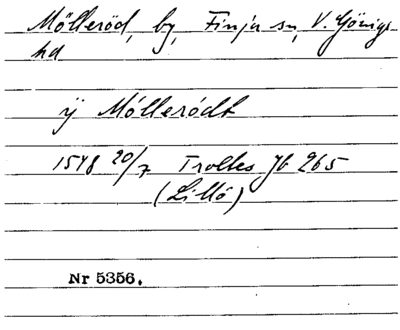 Mölleröd, by, Finja sn, V. Göinge
hd
ÿ Möllerödt
1548 20/7 Trolles Jb 265
(Lillö)
Nr 5356.